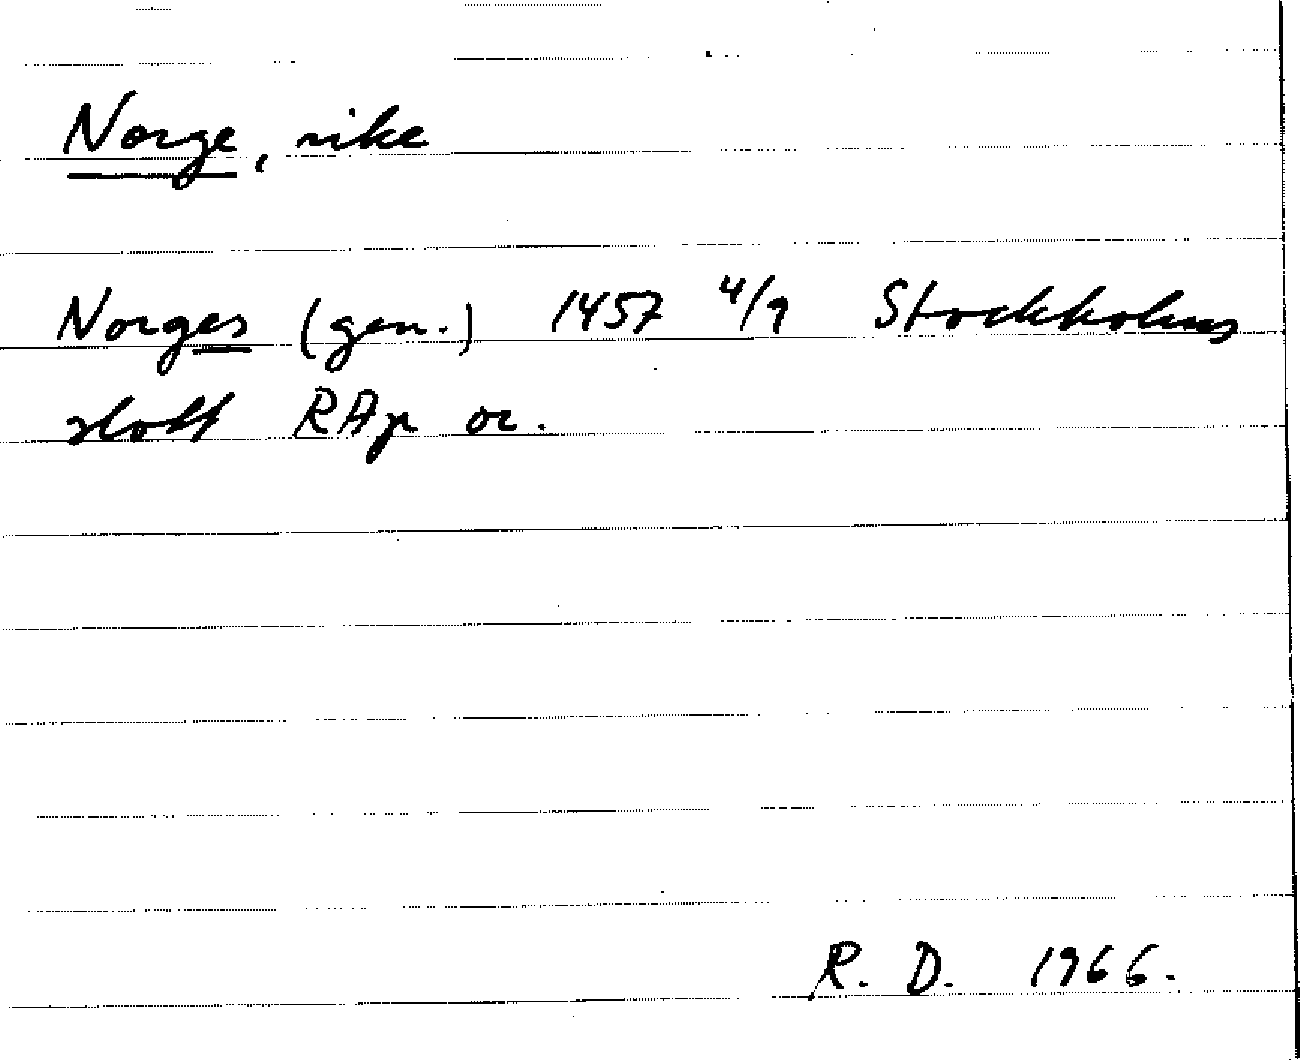 Norge, rike
Norges (gen.) 1457 4/9 Stockholms
slott RAp or.
R. D. 1966.